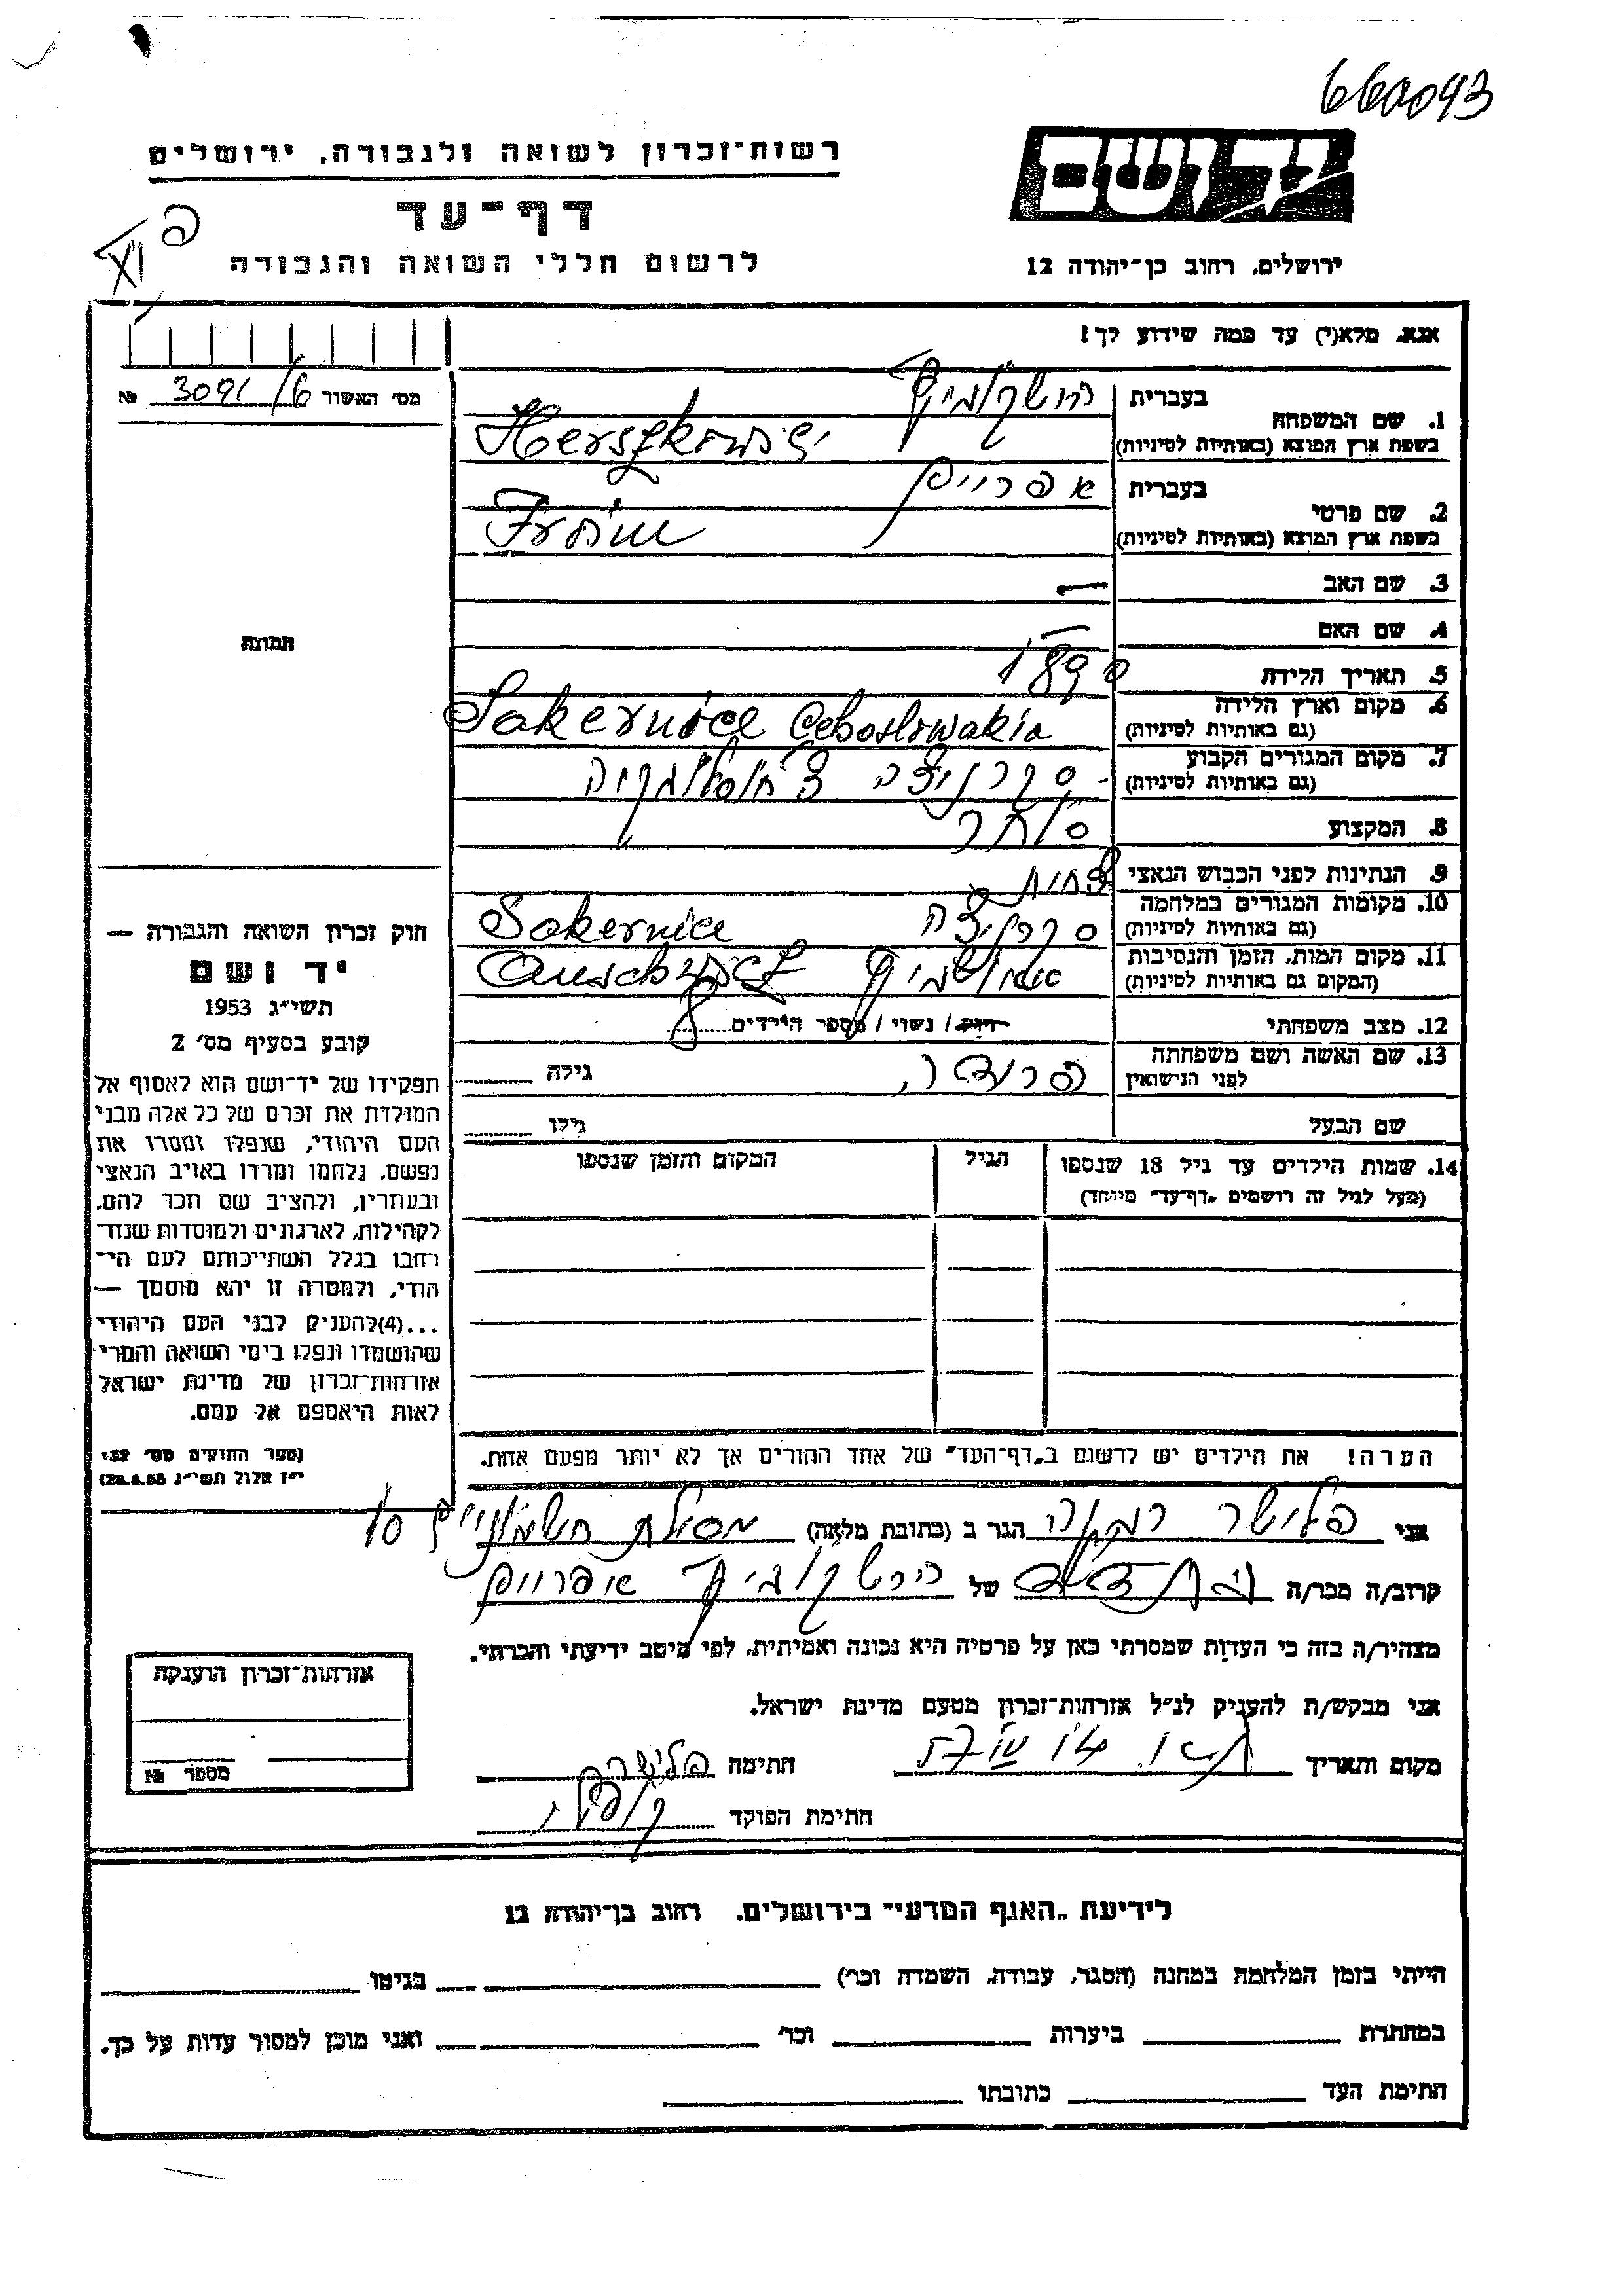 660093
יד ושם
רשות־זכרון לשואה ולגבורה, ירושלים
דף־עד
לרשום חללי השואה והגבורה
ירושלים, רחוב בן־יהודה 12
XI פ
אנא, מלא(י) עד כמה שידוע לך!
מס׳ האשור 3091/6 №
1. שם המשפחה
בעברית הרשקוביץ
בשפת ארץ המוצא (באותיות לטיניות) Herszkowisz
2. שם פרטי
בעברית אפרויים
בשפת ארץ המוצא (באותיות לטיניות) Froim
3. שם האב —
4. שם האם —
5. תאריך הלידה 1890
6. מקום וארץ הלידה
(גם באותיות לטיניות) Sokernice Cehoslowakia
7. מקום המגורים הקבוע
(גם באותיות לטיניות) סקרניצה צ׳כוסלובקיה
8. המקצוע סוחר
9. הנתינות לפני הכבוש הנאצי
10. מקומות המגורים במלחמה
(גם באותיות לטיניות) סקרניצה Sokernice
11. מקום המות, הזמן והנסיבות
(המקום גם באותיות לטיניות) אושוויץ
12. מצב משפחתי רווק / נשוי / מספר הילדים 8
13. שם האשה ושם משפחתה
לפני הנישואין גילה
שם הבעל גילו
14. שמות הילדים עד גיל 18 שנספו
(מעל לגיל זה רושמים „דף־עד״ מיוחד)
הגיל
המקום והזמן שנספו
הערה! את הילדים יש לרשום ב„דף־העד״ של אחד ההורים אך לא יותר מפעם אחת.
תמונה
חוק זכרון השואה והגבורה —
יד ושם
תשי״ג 1953
קובע בסעיף מס׳ 2
תפקידו של יד־ושם הוא לאסוף אל
המולדת את זכרם של כל אלה מבני
העם היהודי, שנפלו ומסרו את
נפשם, נלחמו ומרדו באויב הנאצי
ובעוזריו, ולהציב שם וזכר להם,
לקהילות, לארגונים ולמוסדות שנח־
רבו בגלל השתייכותם לעם הי־
הודי, ולמטרה זו יהא מוסמך —
...(4)להעניק לבני העם היהודי
שהושמדו ונפלו בימי השואה והמרי
אזרחות־זכרון של מדינת ישראל
לאות היאספם אל עמם.
(ספר החוקים מס׳ 132,
י״ז אלול תשי״ג 28.8.53)
אני פלישר רבקה הגר ב (כתובת מלאה) מסילת 10
קרוב/ה מכר/ה של הרשקוביץ אפרויים
מצהיר/ה בזה כי העדות שמסרתי כאן על פרטיה היא נכונה ואמיתית, לפי מיטב ידיעתי והכרתי.
אני מבקש/ת להעניק לנ״ל אזרחות־זכרון מטעם מדינת ישראל.
מקום ותאריך חתימה פלישר
חתימת הפוקד
אזרחות־זכרון הוענקה
מספר №
לידיעת „האגף המדעי״ בירושלים, רחוב בן־יהודה 12
הייתי בזמן המלחמה במחנה (הסגר, עבודה, השמדה וכו׳) בגיטו
במחתרת ביערות וכו׳ ואני מוכן למסור עדות על כך.
חתימת העד כתובתו